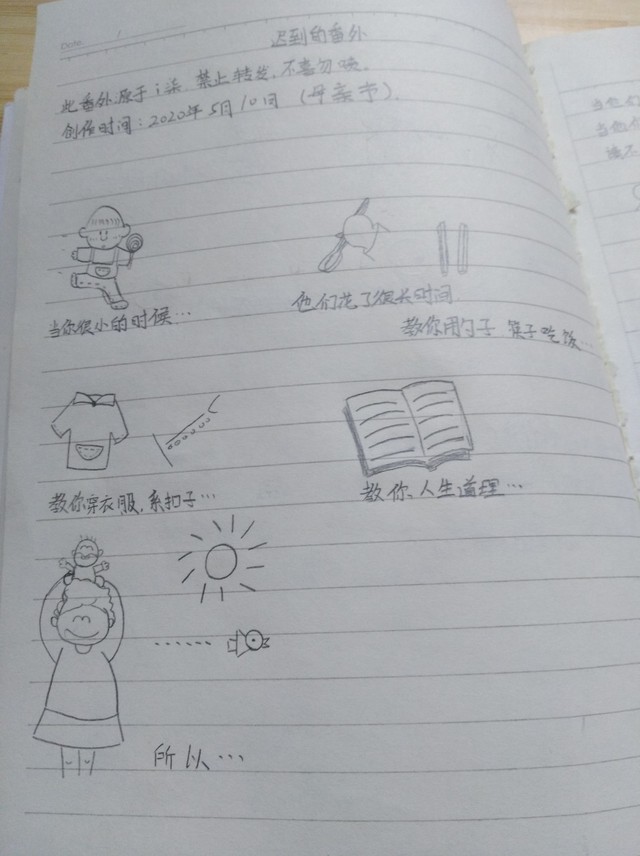 Date /
迟到的番外
此番外原于i柒.禁止转发,不喜勿喷.
创作时间:2020年5月10日(母亲节).
当你很小的时候…
他们花了很长时间
教你用勺子 筷子吃饭…
教你穿衣服,系扣子…
教你、人生道理…
所以…
当他们
当他们